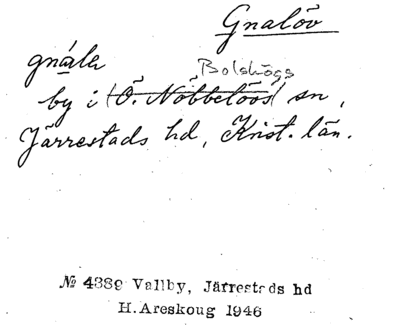 Gnalöv
gnáler
Bolshögs
by i (Ö. Nöbbelövs) sn,
Järrestads hd, Krist. län.
№ 4389 Vallby, Järrestads hd
H. Areskoug 1946